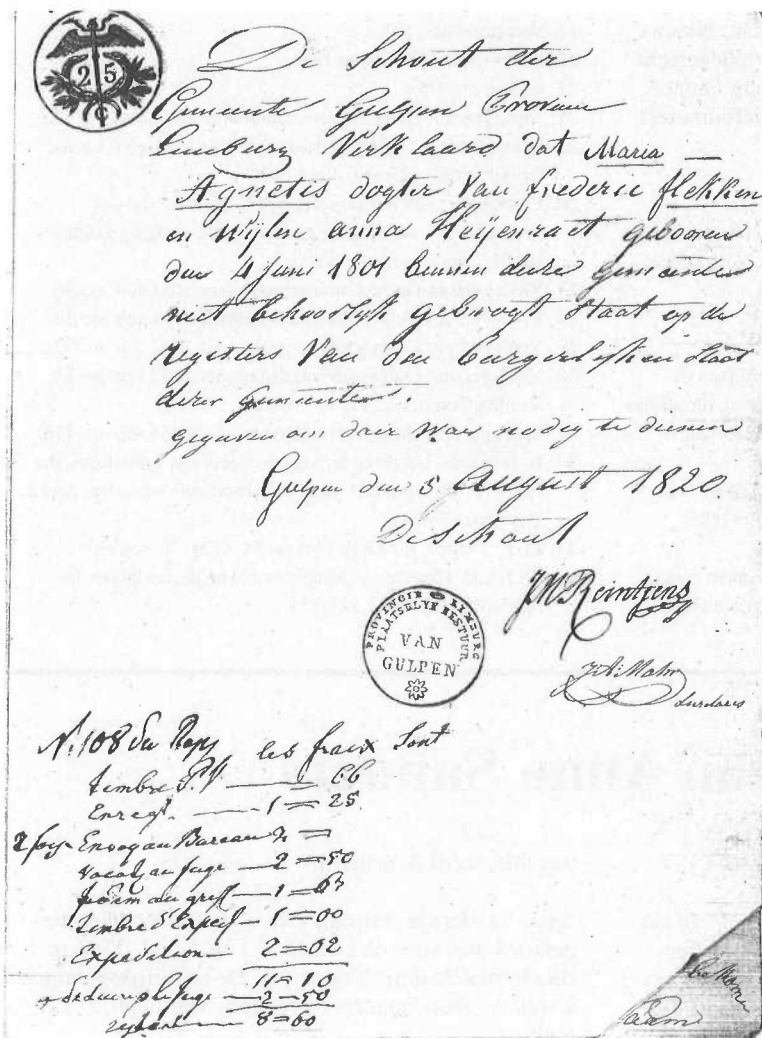 25
C
De Schout der
Gemeente Gulpen Provincie
Limburg Verklaard dat Maria
Agnetis dogter Van frederic flekken
en Wylen anna Heyenraet gebooren
den 4 juni 1801 binnen deze gemeenten
niet behoorlyk gebragt staat op de
registers Van den burgerlyken staat
dezer gemeenten.
gegaven om daer waer nodig te dienen
Gulpen den 5 August 1820
De schout
PROVINCIE LIMBURG
PLAATSELYK BESTUUR
VAN
GULPEN
N. 108 du Rep les fraix Sont
timbre P.V. — 66
Enregt. — 1 = 25
2 Envoy au Bureau
Vacat. au juge — 2 = 50
au greff — 1 =
timbre d'Exped — 1 = 00
Expedition — 2 = 02
11 = 10
le juge — 2 = 50
8 = 60